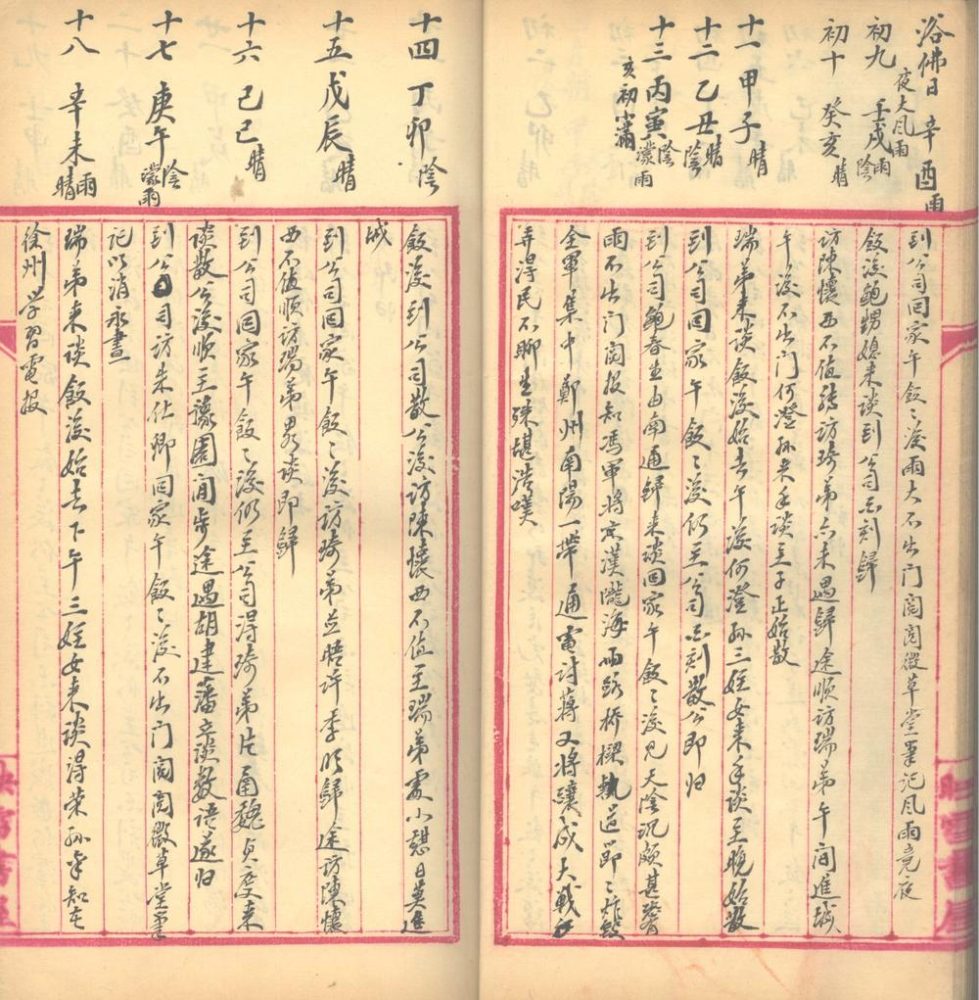 浴佛日 辛酉 雨
到公司回家午飯々後雨大不出門閱閱微草堂筆記風雨竟夜
夜大風雨
初九 壬戌 陰雨
飯後鮑甥媳來談到公司刻歸
初十 癸亥 晴
訪陳懷西不值轉訪琦弟亦未遇歸途順訪瑞弟午間進城
午後不出門何澄孫來手談至子正始散
十一 甲子 晴
瑞弟來談飯後始去午後何澄孫三姪女來手談至晚始散
十二 乙丑 晴陰
到公司回家午飯々後仍至公司刻散公即归
十三 丙寅 陰濛雨
亥初霽
到公司鮑春生由南通歸來談回家午飯々後見天陰沉頗甚發有
雨不出門閱報知馮軍將京漢隴海兩路橋樑軌道節々炸毀
全軍集中鄭州南陽一帶通電討蔣又將釀成大戰
弄得民不聊生殊堪浩嘆
十四 丁卯 陰
飯後到公司散公後訪陳懷西不值至瑞弟處小憩日莫進
城
十五 戊辰 晴
到公司回家午飯々後訪琦弟並晤許季明歸途訪陳懷
西不值順訪瑞弟略談即歸
十六 己巳 晴
到公司回家午飯々後仍至公司得琦弟片函魏貞度來
談散公後順至豫園閒步途遇胡建藩立談數語遂归
十七 庚午 陰濛雨
到公司訪朱仕卿回家午飯々後不出門閱閱微草堂筆
記以消永晝
十八 辛未 雨晴
瑞弟來談飯後始去下午三姪女來談得榮孫年知在
徐州学習電报